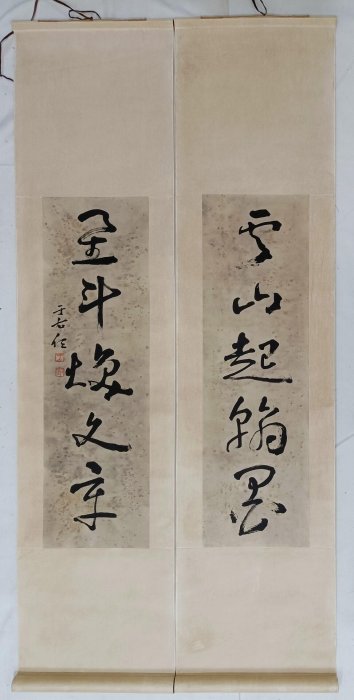 雲山起翰墨
星斗焕文章
于右任